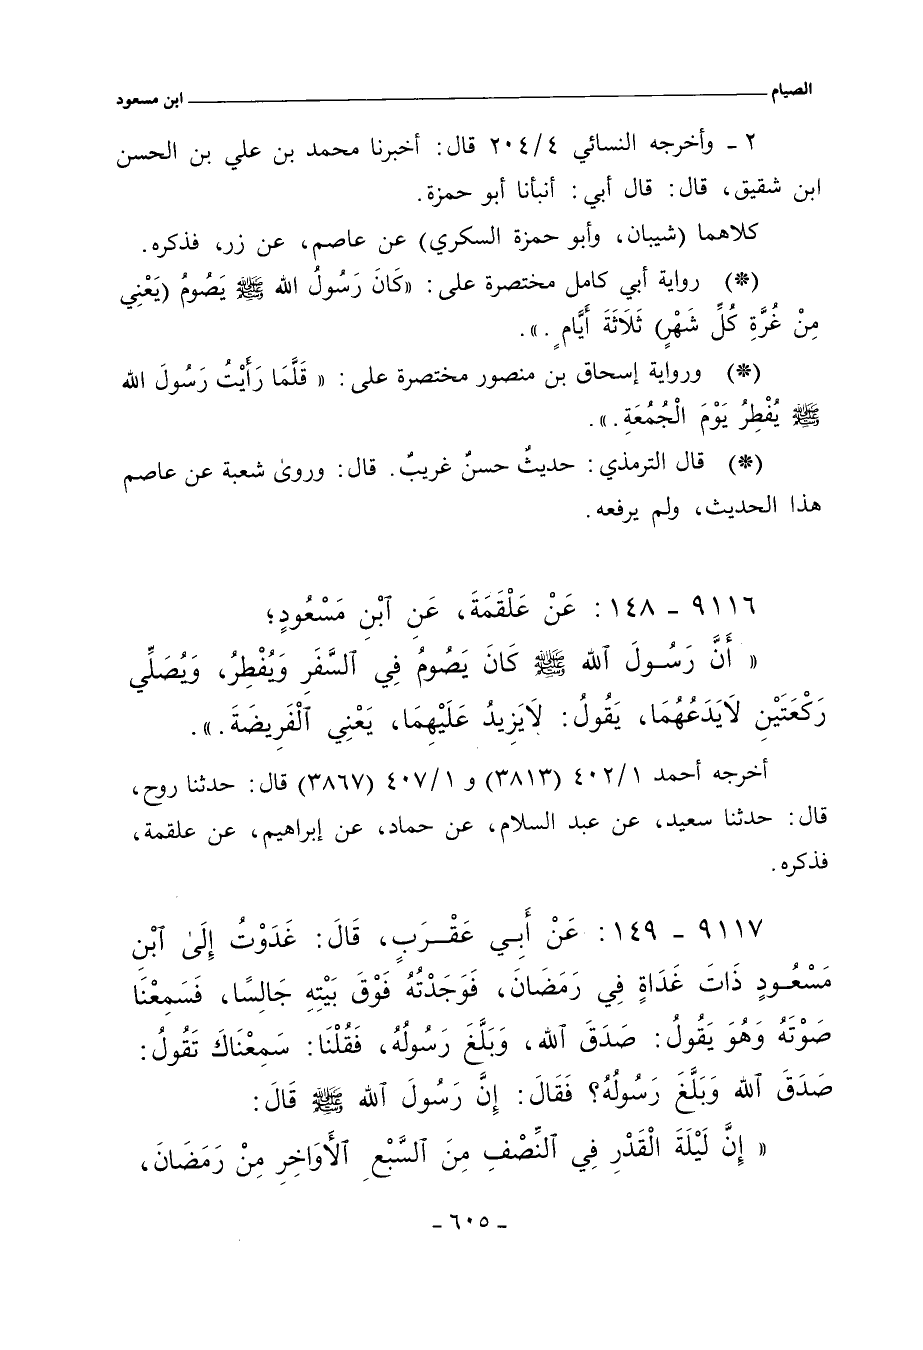 الصيام ــــــ ابن مسعود
٢ ـ وأخرجه النسائي ٢٠٤/٤ قال: أخبرنا محمد بن علي بن الحسن
ابن شقيق، قال: قال أبي: أنبأنا أبو حمزة.
كلاهما (شيبان، وأبو حمزة السكري) عن عاصم، عن زر، فذكره.
(*) رواية أبي كامل مختصرة على: «كَانَ رَسُولُ الله ﷺ يَصُومُ (يَعْنِي
مِنْ غُرَّةِ كُلِّ شَهْرٍ) ثَلَاثَةَ أَيَّامٍ.».
(*) ورواية إسحاق بن منصور مختصرة على: « قَلَّمَا رَأَيْتُ رَسُولَ الله
ﷺ يُفْطِرُ يَوْمَ الْجُمُعَةِ.».
(*) قال الترمذي: حديثٌ حسنٌ غريبٌ. قال: وروىٰ شعبة عن عاصم
هذا الحديث، ولم يرفعه.
٩١١٦ ـ ١٤٨: عَنْ عَلْقَمَةَ، عَنِ ٱبْنِ مَسْعُودٍ؛
« أَنَّ رَسُولَ ٱلله ﷺ كَانَ يَصُومُ فِي ٱلسَّفَرِ وَيُفْطِرُ، وَيُصَلِّي
رَكْعَتَيْنِ لَايَدَعُهُمَا، يَقُولُ: لَايَزِيدُ عَلَيْهِمَا، يَعْنِي ٱلْفَرِيضَةَ.».
أخرجه أحمد ٤٠٢/١ (٣٨١٣) و ٤٠٧/١ (٣٨٦٧) قال: حدثنا روح،
قال: حدثنا سعيد، عن عبد السلام، عن حماد، عن إبراهيم، عن علقمة،
فذكره.
٩١١٧ ـ ١٤٩: عَنْ أَبِي عَقْرَبٍ، قَالَ: غَدَوْتُ إِلَىٰ ٱبْنِ
مَسْعُودٍ ذَاتَ غَدَاةٍ فِي رَمَضَانَ، فَوَجَدْتُهُ فَوْقَ بَيْتِهِ جَالِسًا، فَسَمِعْنَا
صَوْتَهُ وَهُوَ يَقُولُ: صَدَقَ ٱلله، وَبَلَّغَ رَسُولُهُ، فَقُلْنَا: سَمِعْنَاكَ تَقُولُ:
صَدَقَ ٱلله وَبَلَّغَ رَسُولُهُ؟ فَقَالَ: إِنَّ رَسُولَ ٱلله ﷺ قَالَ:
« إِنَّ لَيْلَةَ الْقَدْرِ فِي ٱلنِّصْفِ مِنَ ٱلسَّبْعِ ٱلْأَوَاخِرِ مِنْ رَمَضَانَ،
ـ ٦٠٥ ـ